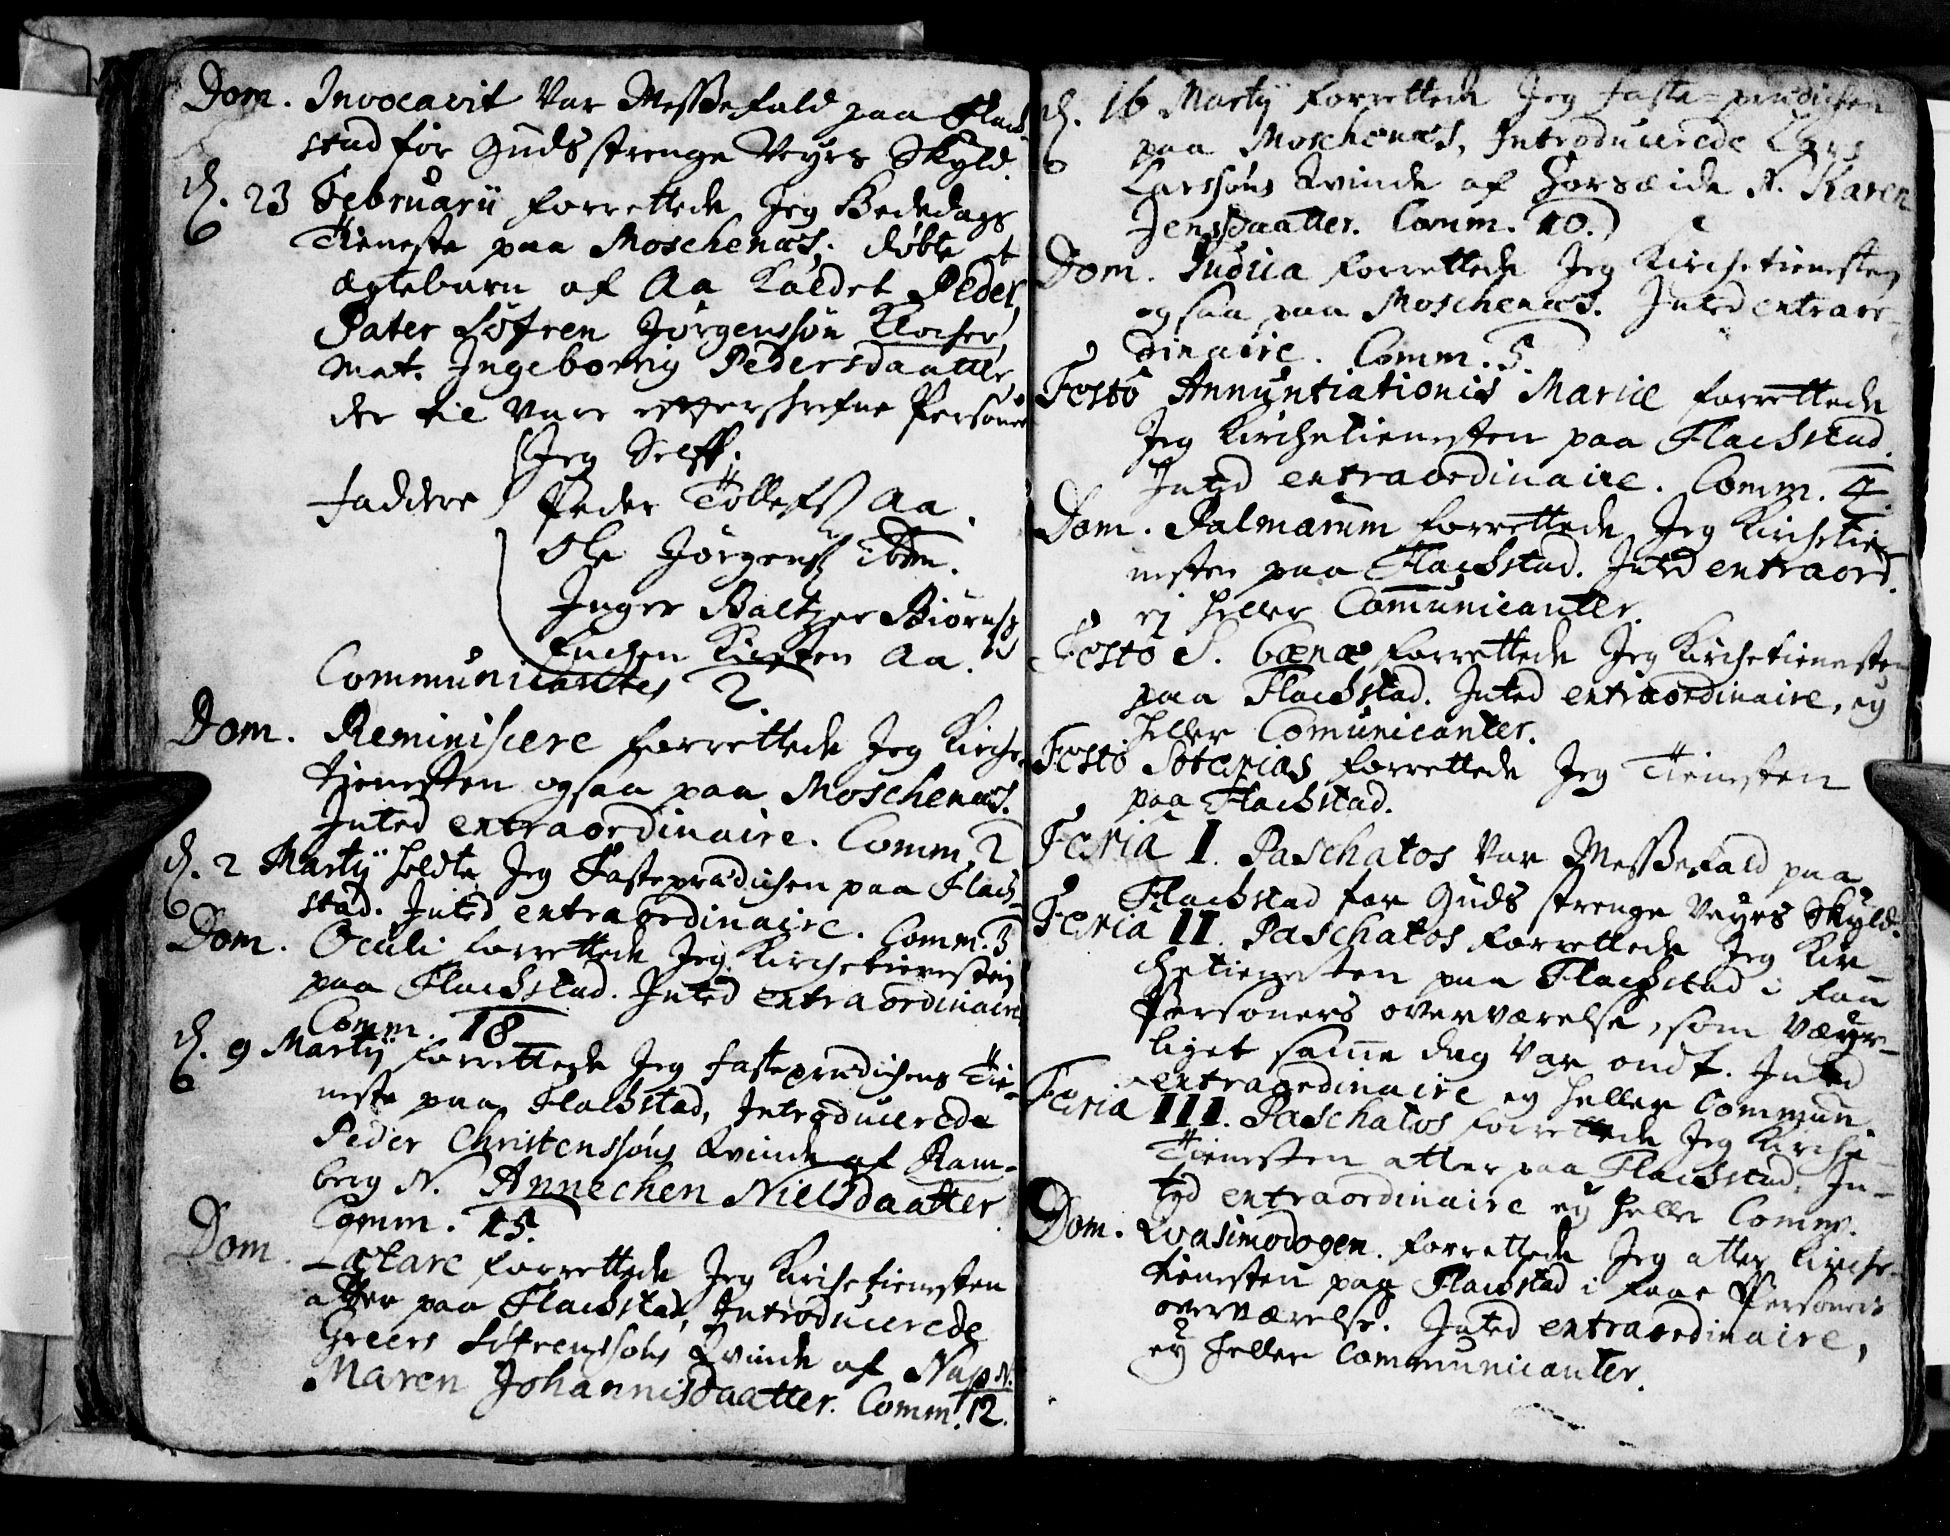 Dom. Invocavit Var Messefald paa Flach-
stad for Guds strenge Veyrs Skyld.
d. 23 Februarii forrettede Jeg Bededags
Tieneste paa Moschenæs, døbte et
ægtebarn af Aa kaldet Peder,
Pater Søfren Jørgenssøn Klocher,
Mat. Ingeborrig Pedersdaatter,
der til Vare efterskrefne Personer
Jeg Selff.
faddere Peder Tollefs Aa.
Ole Jørgens ibm.
Inger Baltzer Biørns
Enchen Kirsten Aa.
Communicantes 2.
Dom. Reminiscere forrettede Jeg Kirche-
tienesten ogsaa paa Moschenæs.
Inted extraordinaire. Comm. 2
d. 2 Martij holdte Jeg Fasteprædichen paa Flach-
stad. Inted extraordinaire. Comm. 3
Dom. Oculi forrettede Jeg Kirchetienesten
paa Flachstad. Inted extraordinaire
Comm. 18
d. 9 Martij forrettede Jeg fasteprædichens Tie-
neste paa Flachstad, Introducerede
Peder Christenssøns Qvinde af Ram-
berg N. Annechen Nielsdaatter
Comm. 15.
Dom. Lætare forrettede Jeg Kirchetienesten
atter paa Flachstad, Introducerede
Greers Søfrenssøns Qvinde af Nap N.
Maren Johannisdaatter. Comm. 12.
d. 16 Martij forrettede Jeg faste-prædichen
paa Moschenæs, Introducerede Lars
Larssøns Qvinde af N. Karen
Jensdaatter. Comm. 10.
Dom. Judica forrettede Jeg Kirchetienesten
ogsaa paa Moschenæs. Inted extraor-
dinaire. Comm. 5.
Festo Annuntiationis Mariæ forrettede
Jeg Kirchetienesten paa Flachstad.
Inted extraordinaire. Comm. 4
Dom. Palmarum forrettede Jeg Kirchetie-
nesten paa Flachstad. Inted extraord.
ej heller Comunicanter.
Festo S. Cœnæ forrettede Jeg Kirchetienesten
paa Flachstad. Inted extraordinaire, ey
heller Comunicanter.
Festo Soterias forrettede Jeg Tienesten
paa Flachstad.
Feria I. Paschatos Var Messefald paa
Flachstad for Guds strenge Veyrs Skyld.
Feria II. Paschatos forrettede Jeg Kir-
chetienesten paa Flachstad i faa
Personers overværelse, som Væyr-
liget samme dag Var ondt. Inted
extraordinaire ey heller Commun.
Feria III. Paschatos forrettede Jeg Kirche-
Tienesten atter paa Flachstad. In-
ted extraordinaire ey heller Comm.
Dom. Qvasimodogen. forrettede Jeg atter Kirche-
tienesten paa Flachstad i faae Personers
overværelse. Inted extraordinaire,
ey heller Communicanter.